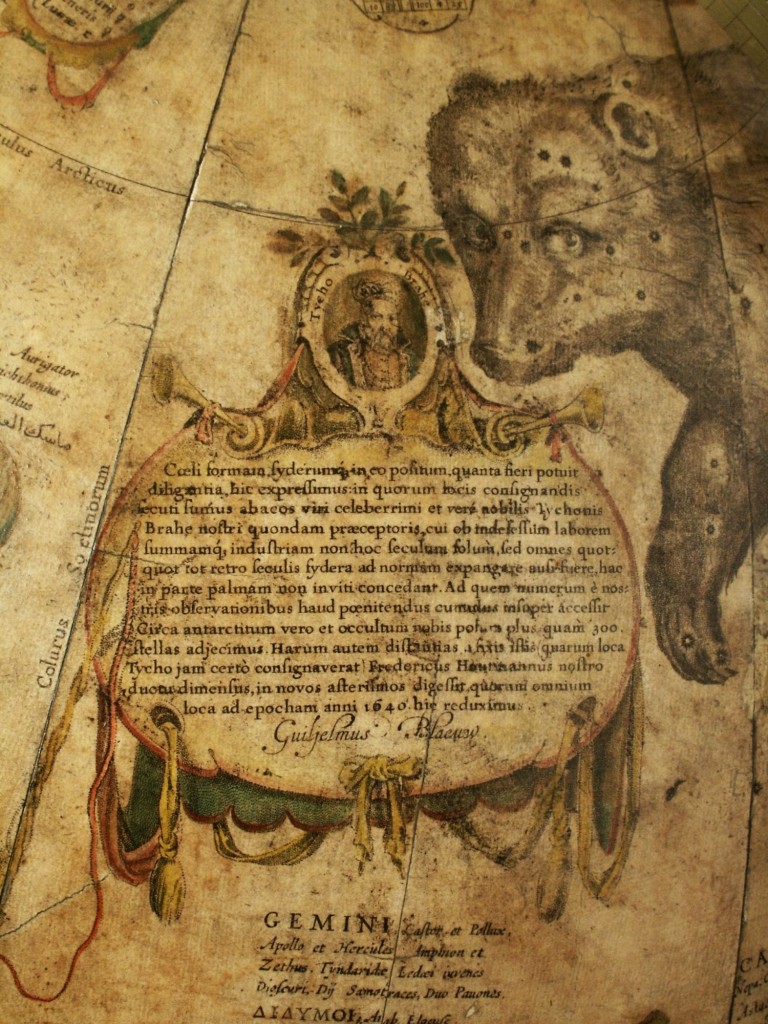 Arcticus
Aurigator
Tycho Brahe
Cœli formam, syderumq, in eo positum, quanta fieri potuit
diligentia, hic expressimus: in quorum locis consignandis
secuti sumus abacos viri celeberrimi et verè nobilis Tychonis
Brahe nostri quondam præceptoris, cui ob indefessum laborem
summamq, industriam non hoc seculum solum, sed omnes quot:
quot tot retro seculis sydera ad normam expangere ausi fuere, hac
in parte palmam non inviti concedant. Ad quem numerum è nos:
tris observationibus haud pœnitendus cumulus insuper accessit
Circa antarctitum vero et occultum nobis polum plus quam 300.
stellas adjecimus. Harum autem distantias a fixis istis quarum loca
Tycho jam certò consignaverat Fredericus Houtmannus nostro
ductu dimensus, in novos asterismos digessit, quorum omnium
loca ad epocham anni 1640 hic reduximus.
Guiljelmus Blaeuw.
Colurus Solstitiorum
GEMINI, Castor, et Pollux,
Apollo et Hercules Amphion et
Zethus, Tyndaridæ, Ledæi iuvenes
Dioscuri, Dij Samotraces, Duo Pavones,
ΔΙΔΥΜΟΙ, Arab. Elgeuse
CA